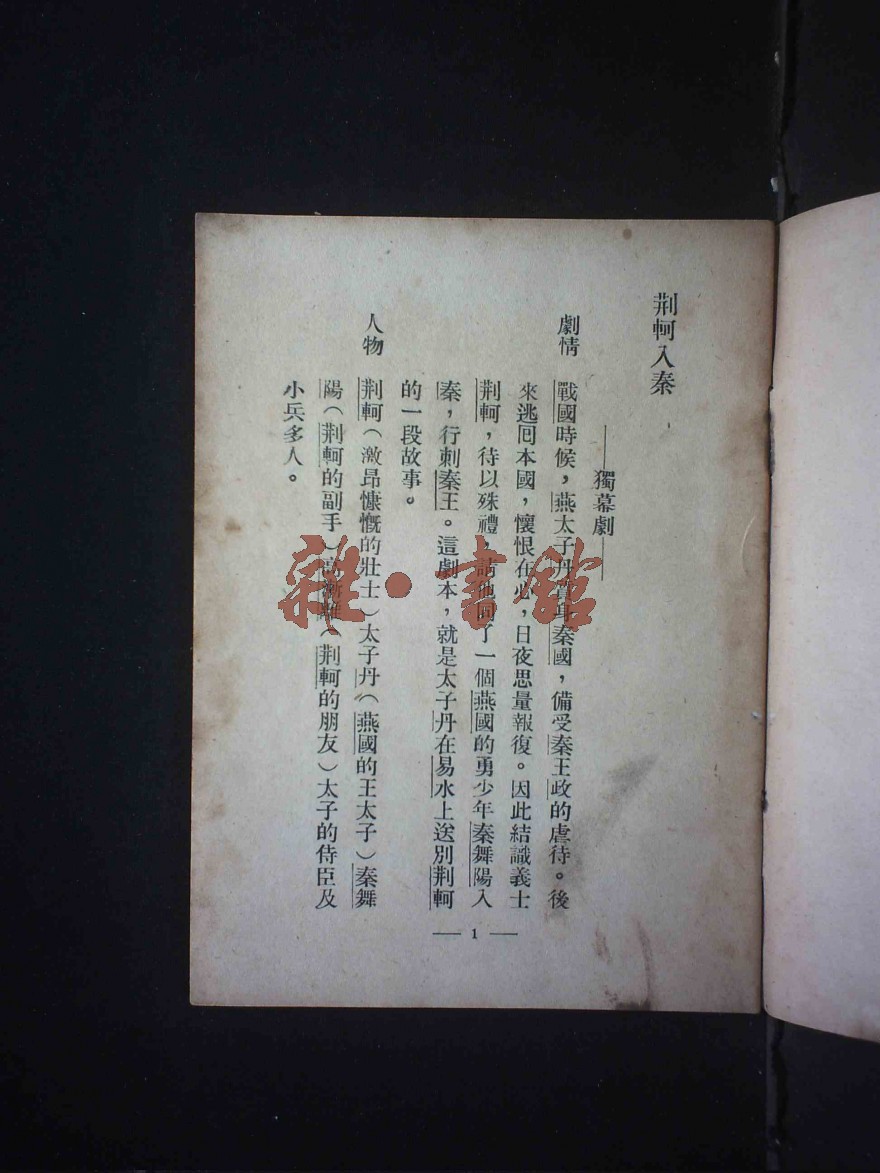 荆軻入秦
——獨幕劇——
劇情 戰國時候，燕太子丹質身秦國，備受秦王政的虐待。後
來逃回本國，懷恨在心，日夜思量報復。因此結識義士
荆軻，待以殊禮，請他同了一個燕國的勇少年秦舞陽入
秦，行刺秦王。這劇本，就是太子丹在易水上送別荆軻
的一段故事。
人物 荆軻（激昂慷慨的壯士）太子丹（燕國的王太子）秦舞
陽（荆軻的副手）高漸離（荆軻的朋友）太子的侍臣及
小兵多人。
— 1 —
雜·書館